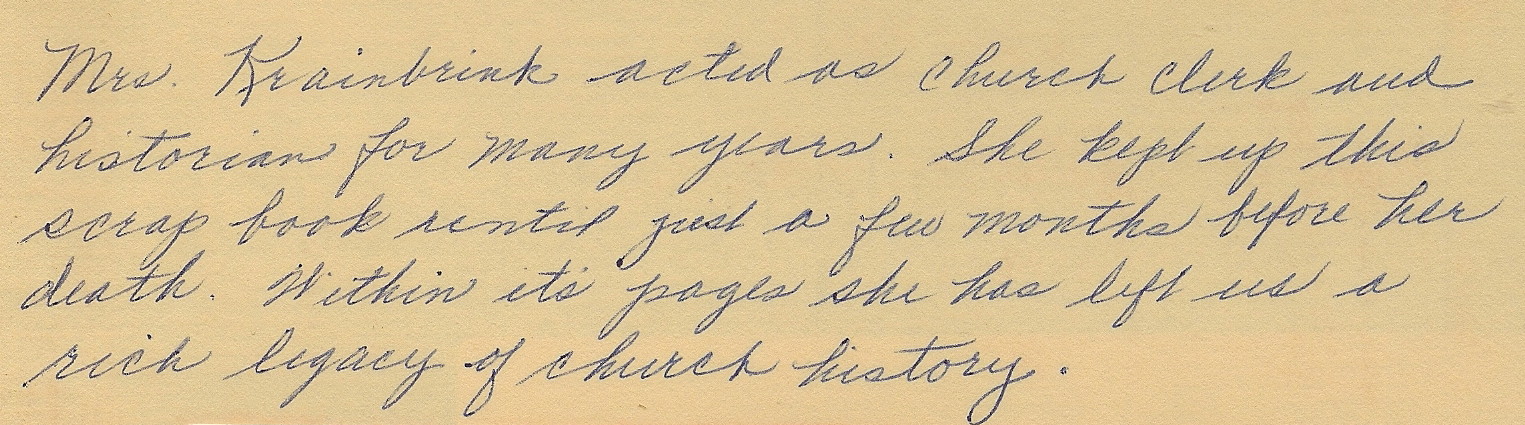 Mrs. Krainbrink acted as church clerk and
historian for many years. She kept up this
scrap book until just a few months before her
death. Within it's pages she has left us a
rich legacy of church history.